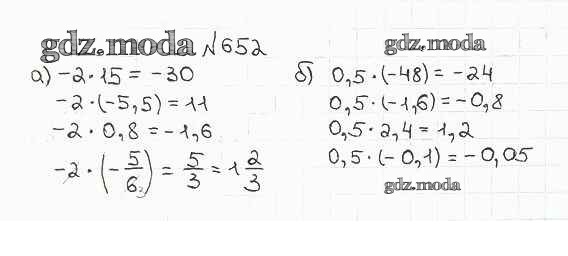 gdz.moda №652
а) -2 · 15 = -30
-2 · (-5,5) = 11
-2 · 0,8 = -1,6
-2 · (-5/6₃) = 5/3 = 1 2/3
gdz.moda
б) 0,5 · (-48) = -24
0,5 · (-1,6) = -0,8
0,5 · 2,4 = 1,2
0,5 · (-0,1) = -0,05
gdz.moda